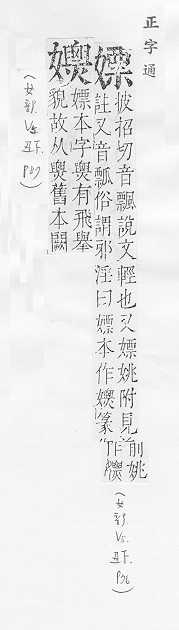 正字通
嫖
披招切音飄說文輕也又嫖姚附見前姚
註又音瓢俗謂邪淫曰嫖本作篆作
(女部. V5. 丑下. P76)
嫖本字䙲有飛舉
貌故从䙲舊本闕
(女部. V5. 丑下. P77)